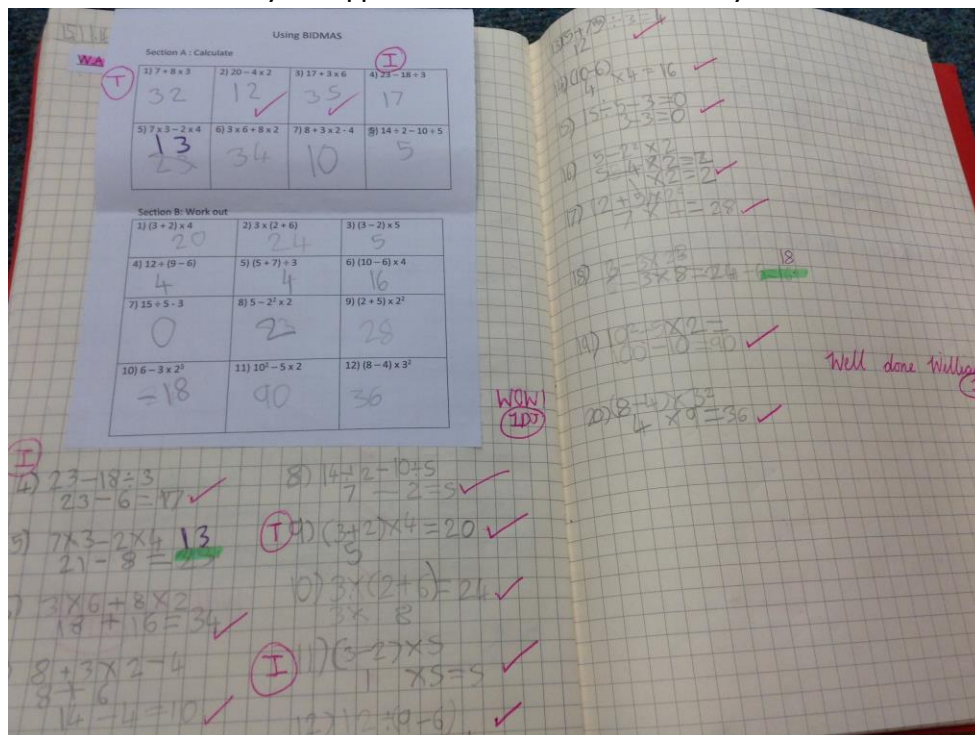 WA
Using BIDMAS
Section A : Calculate
T
I
1) 7 + 8 x 3
2) 20 – 4 x 2
3) 17 + 3 x 6
4) 23 – 18 ÷ 3
32
12
35
17
5) 7 x 3 – 2 x 4
6) 3 x 6 + 8 x 2
7) 8 + 3 x 2 - 4
14 ÷ 2 – 10 ÷ 5
13
23
34
10
5
Section B: Work out
1) (3 + 2) x 4
2) 3 x (2 + 6)
3) (3 – 2) x 5
20
24
5
4) 12 ÷ (9 – 6)
5) (5 + 7) ÷ 3
6) (10 – 6) x 4
4
4
16
7) 15 ÷ 5 - 3
8) 5 – 2² x 2
9) (2 + 5) x 2²
0
28
10) 6 – 3 x 2³
11) 10² – 5 x 2
12) (8 – 4) x 3²
90
36
WOW!
I
4) 23-18÷3
23-6=17
5) 7x3-2x4 13
21-8=23
3x6+8x2
18+16=34
8+3x2-4
8+6
14-4=10
8) 14÷2-10÷5
7-2=5
T 9) (3+2)x4=20
5
10) 3x(2+6)=24
3x 8
I 11) (3-2)x5
1 x5=5
12) 12÷(9-6)
÷3=4
12
(10-6)x4=16
4
15) 15÷5-3=0
3-3=0
16) 5-2²x2
x2=2
17)
7x4=28
18) 18
3x8=24
19) 10²-5x2=
100-10=90
20) (8-4)x3²
4 x9=36
Well done